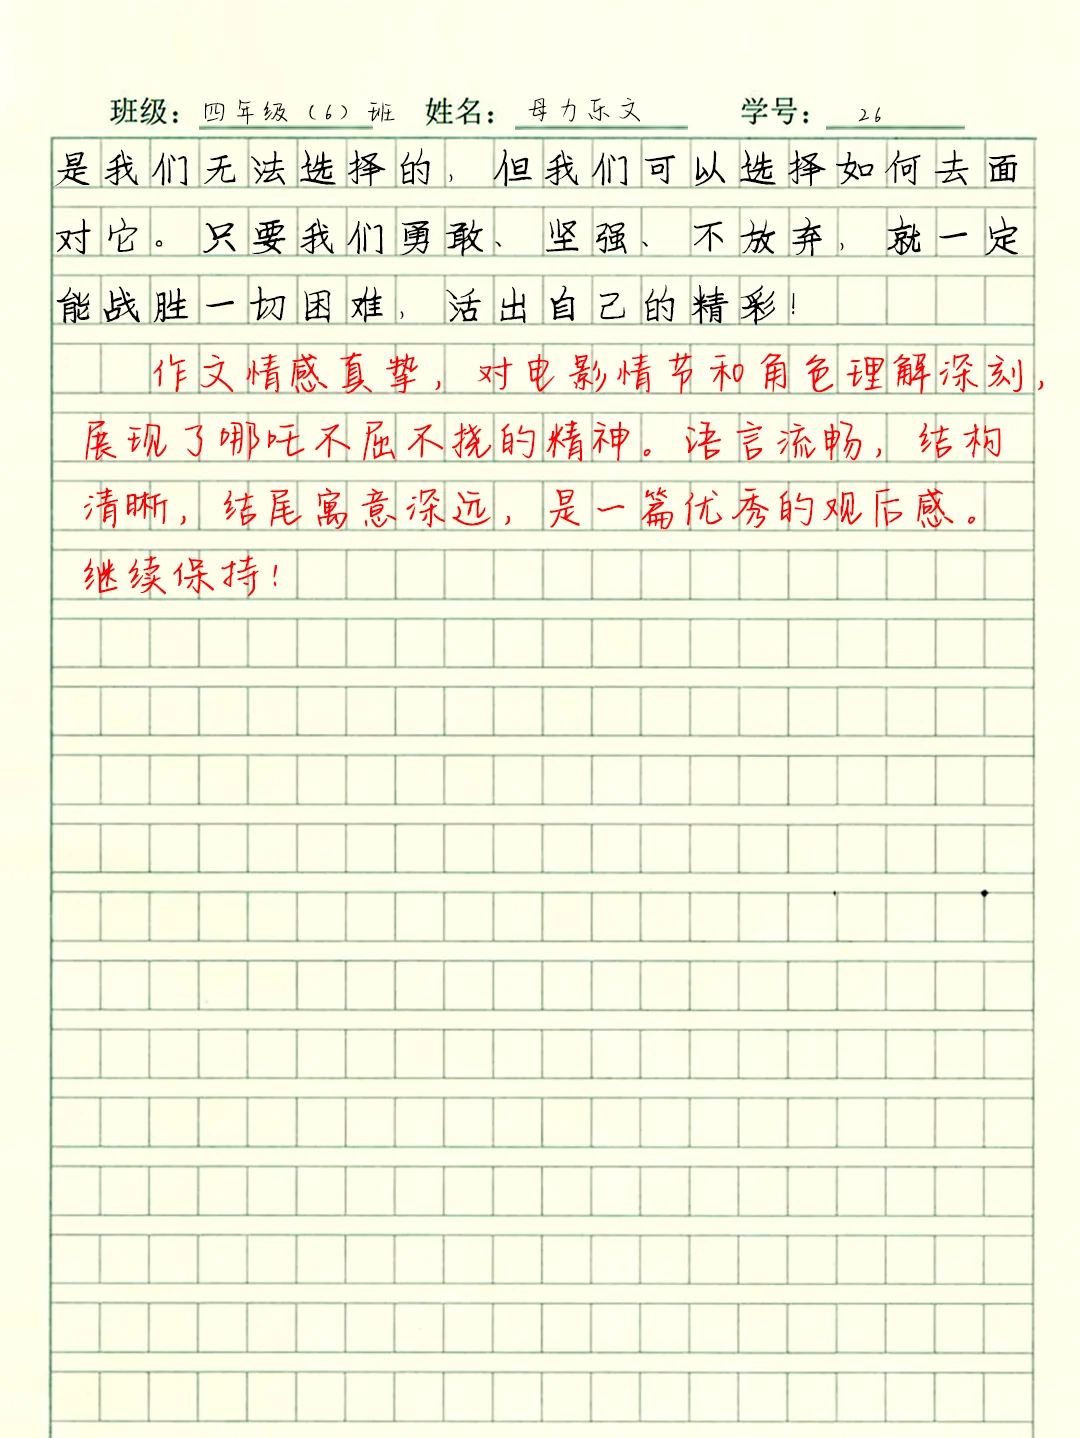 班级：四年级（6）班 姓名：母力乐文 学号：26
是我们无法选择的，但我们可以选择如何去面
对它。只要我们勇敢、坚强、不放弃，就一定
能战胜一切困难，活出自己的精彩！
作文情感真挚，对电影情节和角色理解深刻，
展现了哪吒不屈不挠的精神。语言流畅，结构
清晰，结尾寓意深远，是一篇优秀的观后感。
继续保持！